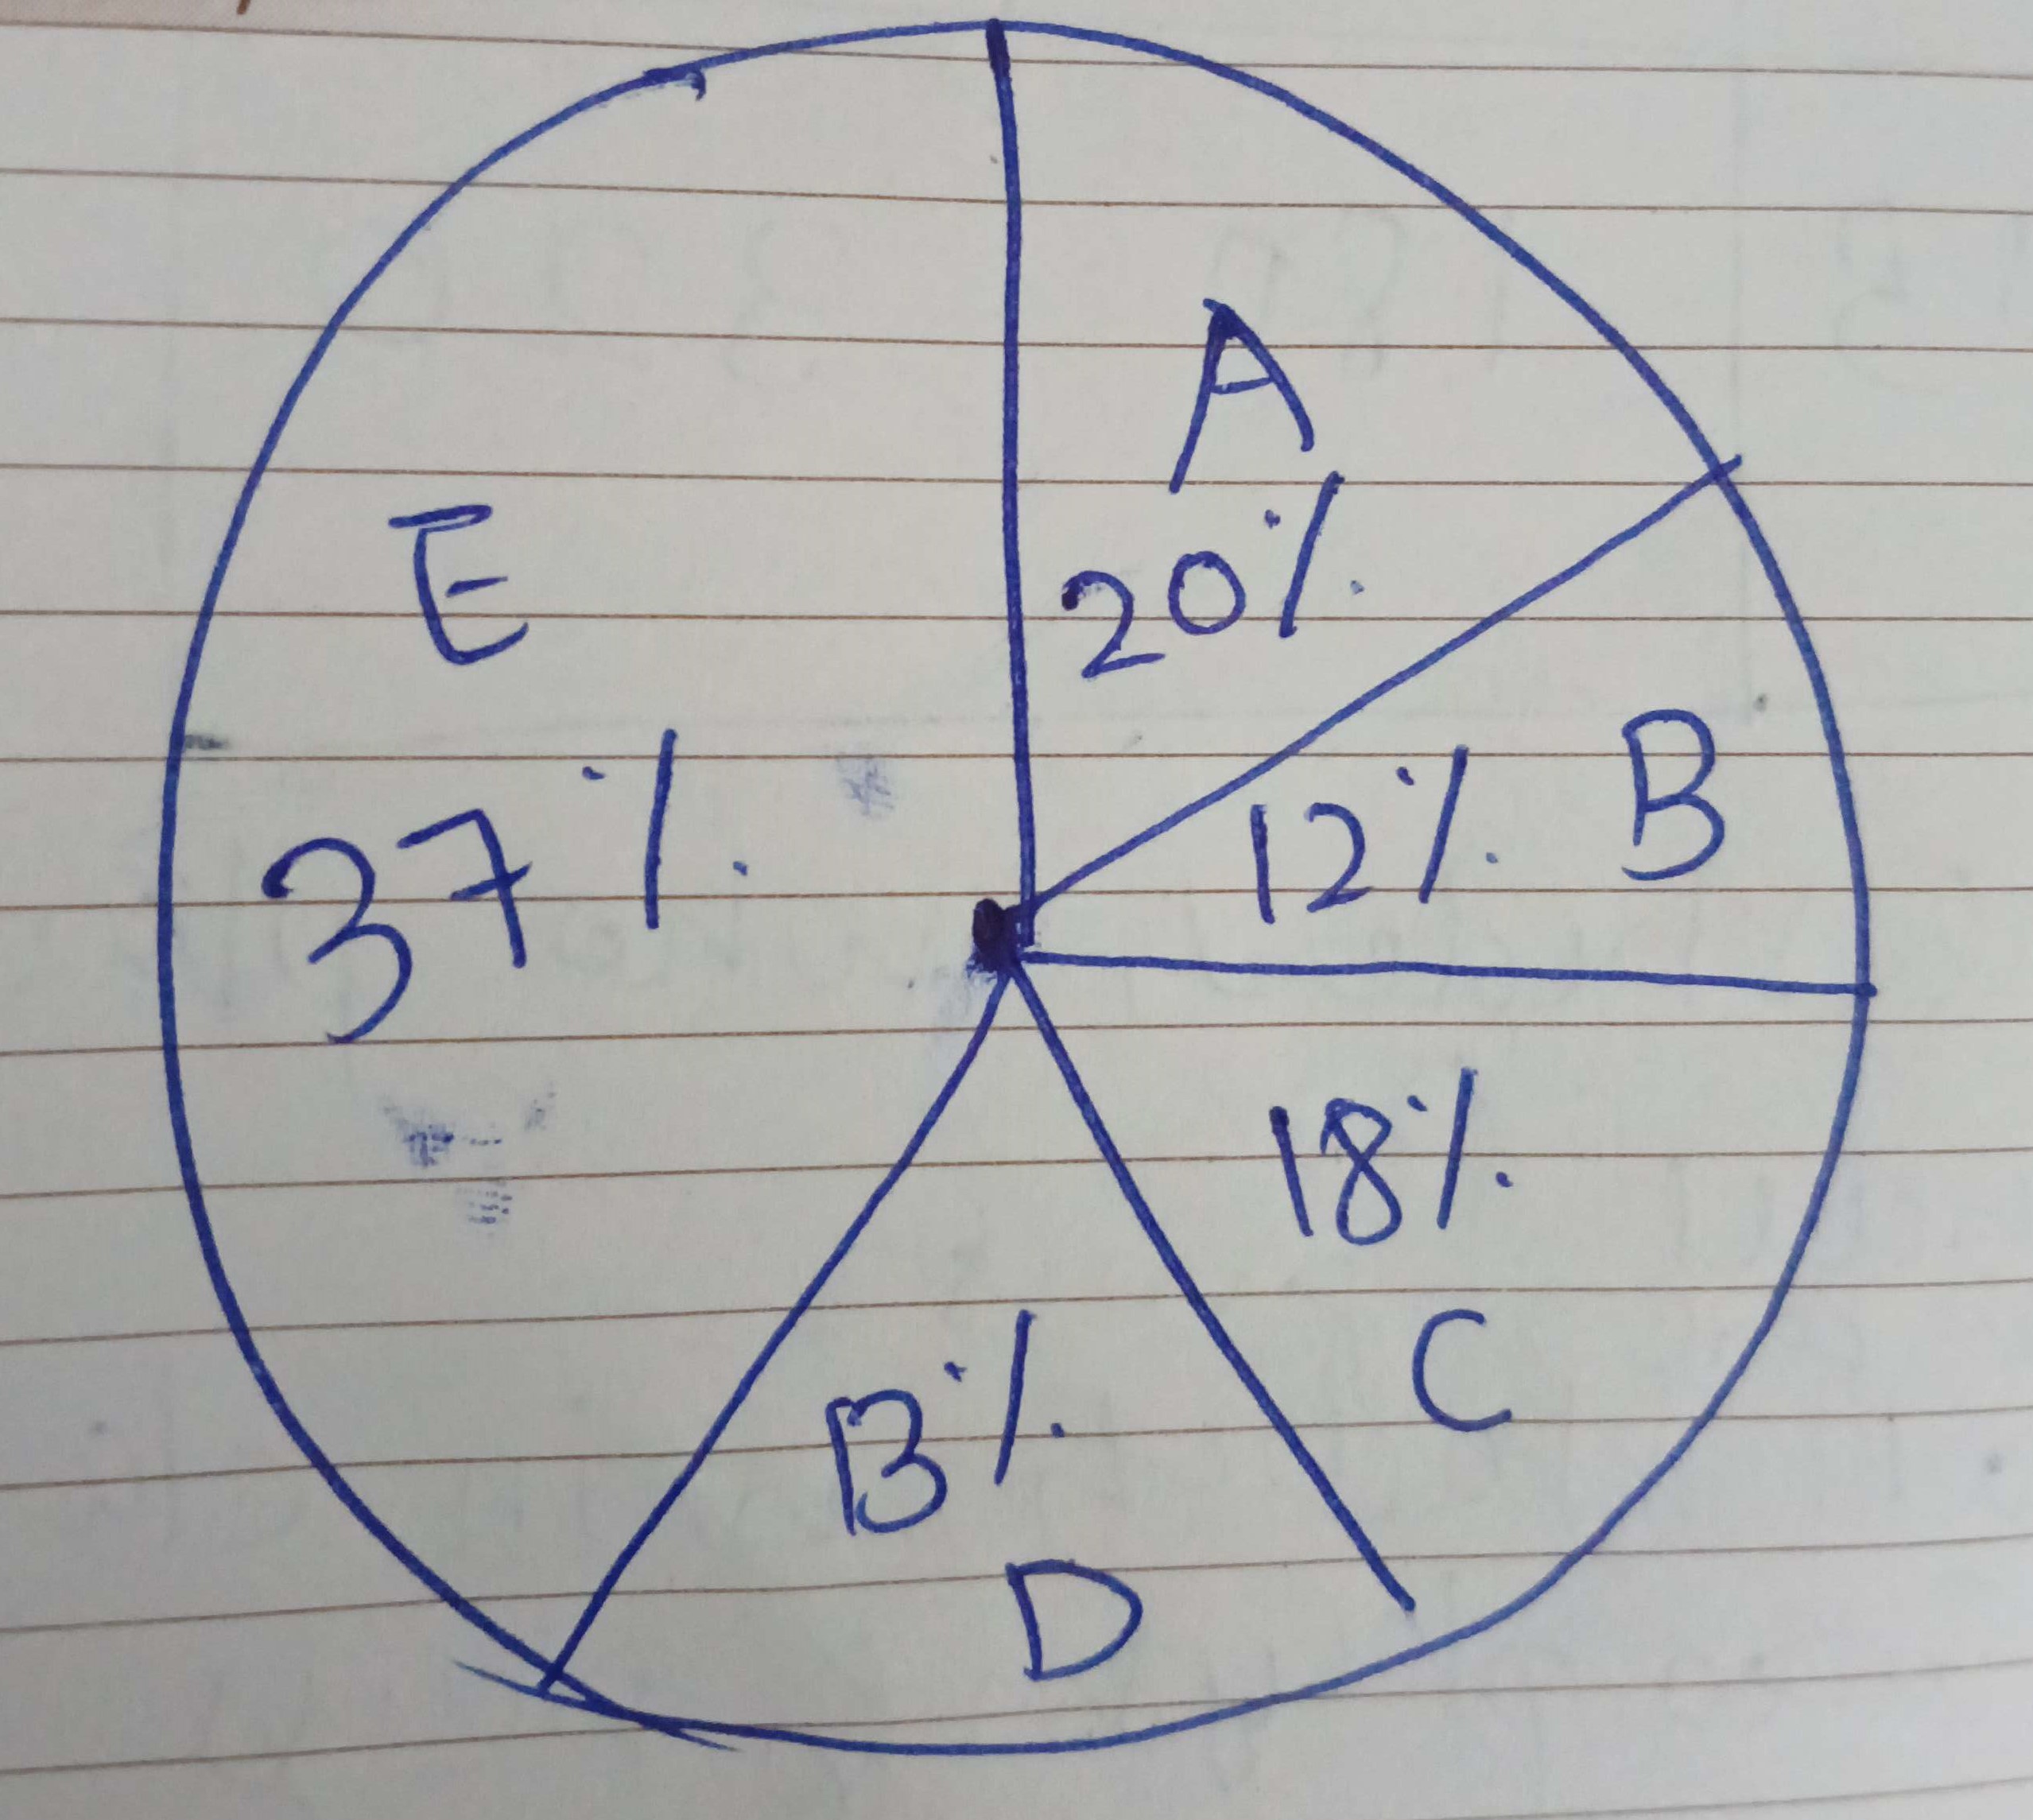 A
20%
12% B
18%
C
13%
D
E
37%